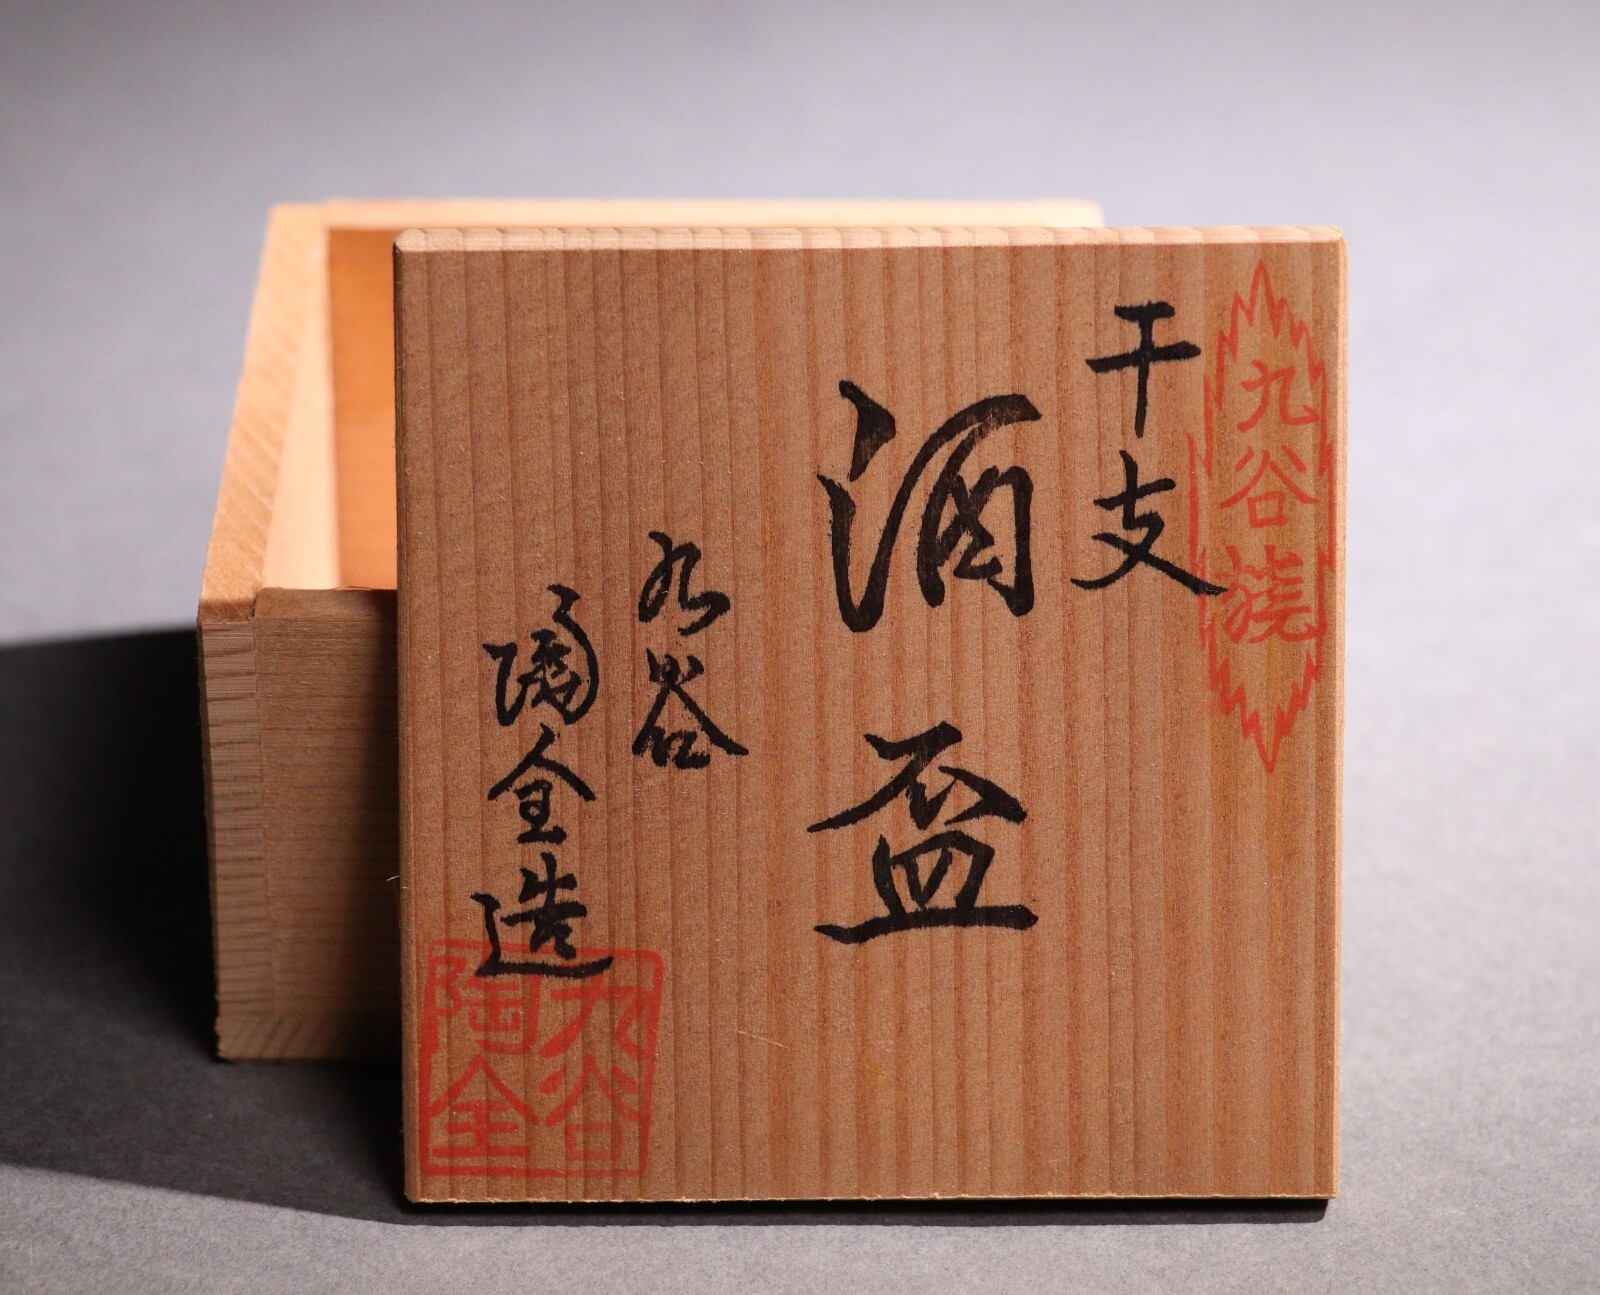 九谷焼
干支
酒盃
九谷
陶全造
九谷
陶全